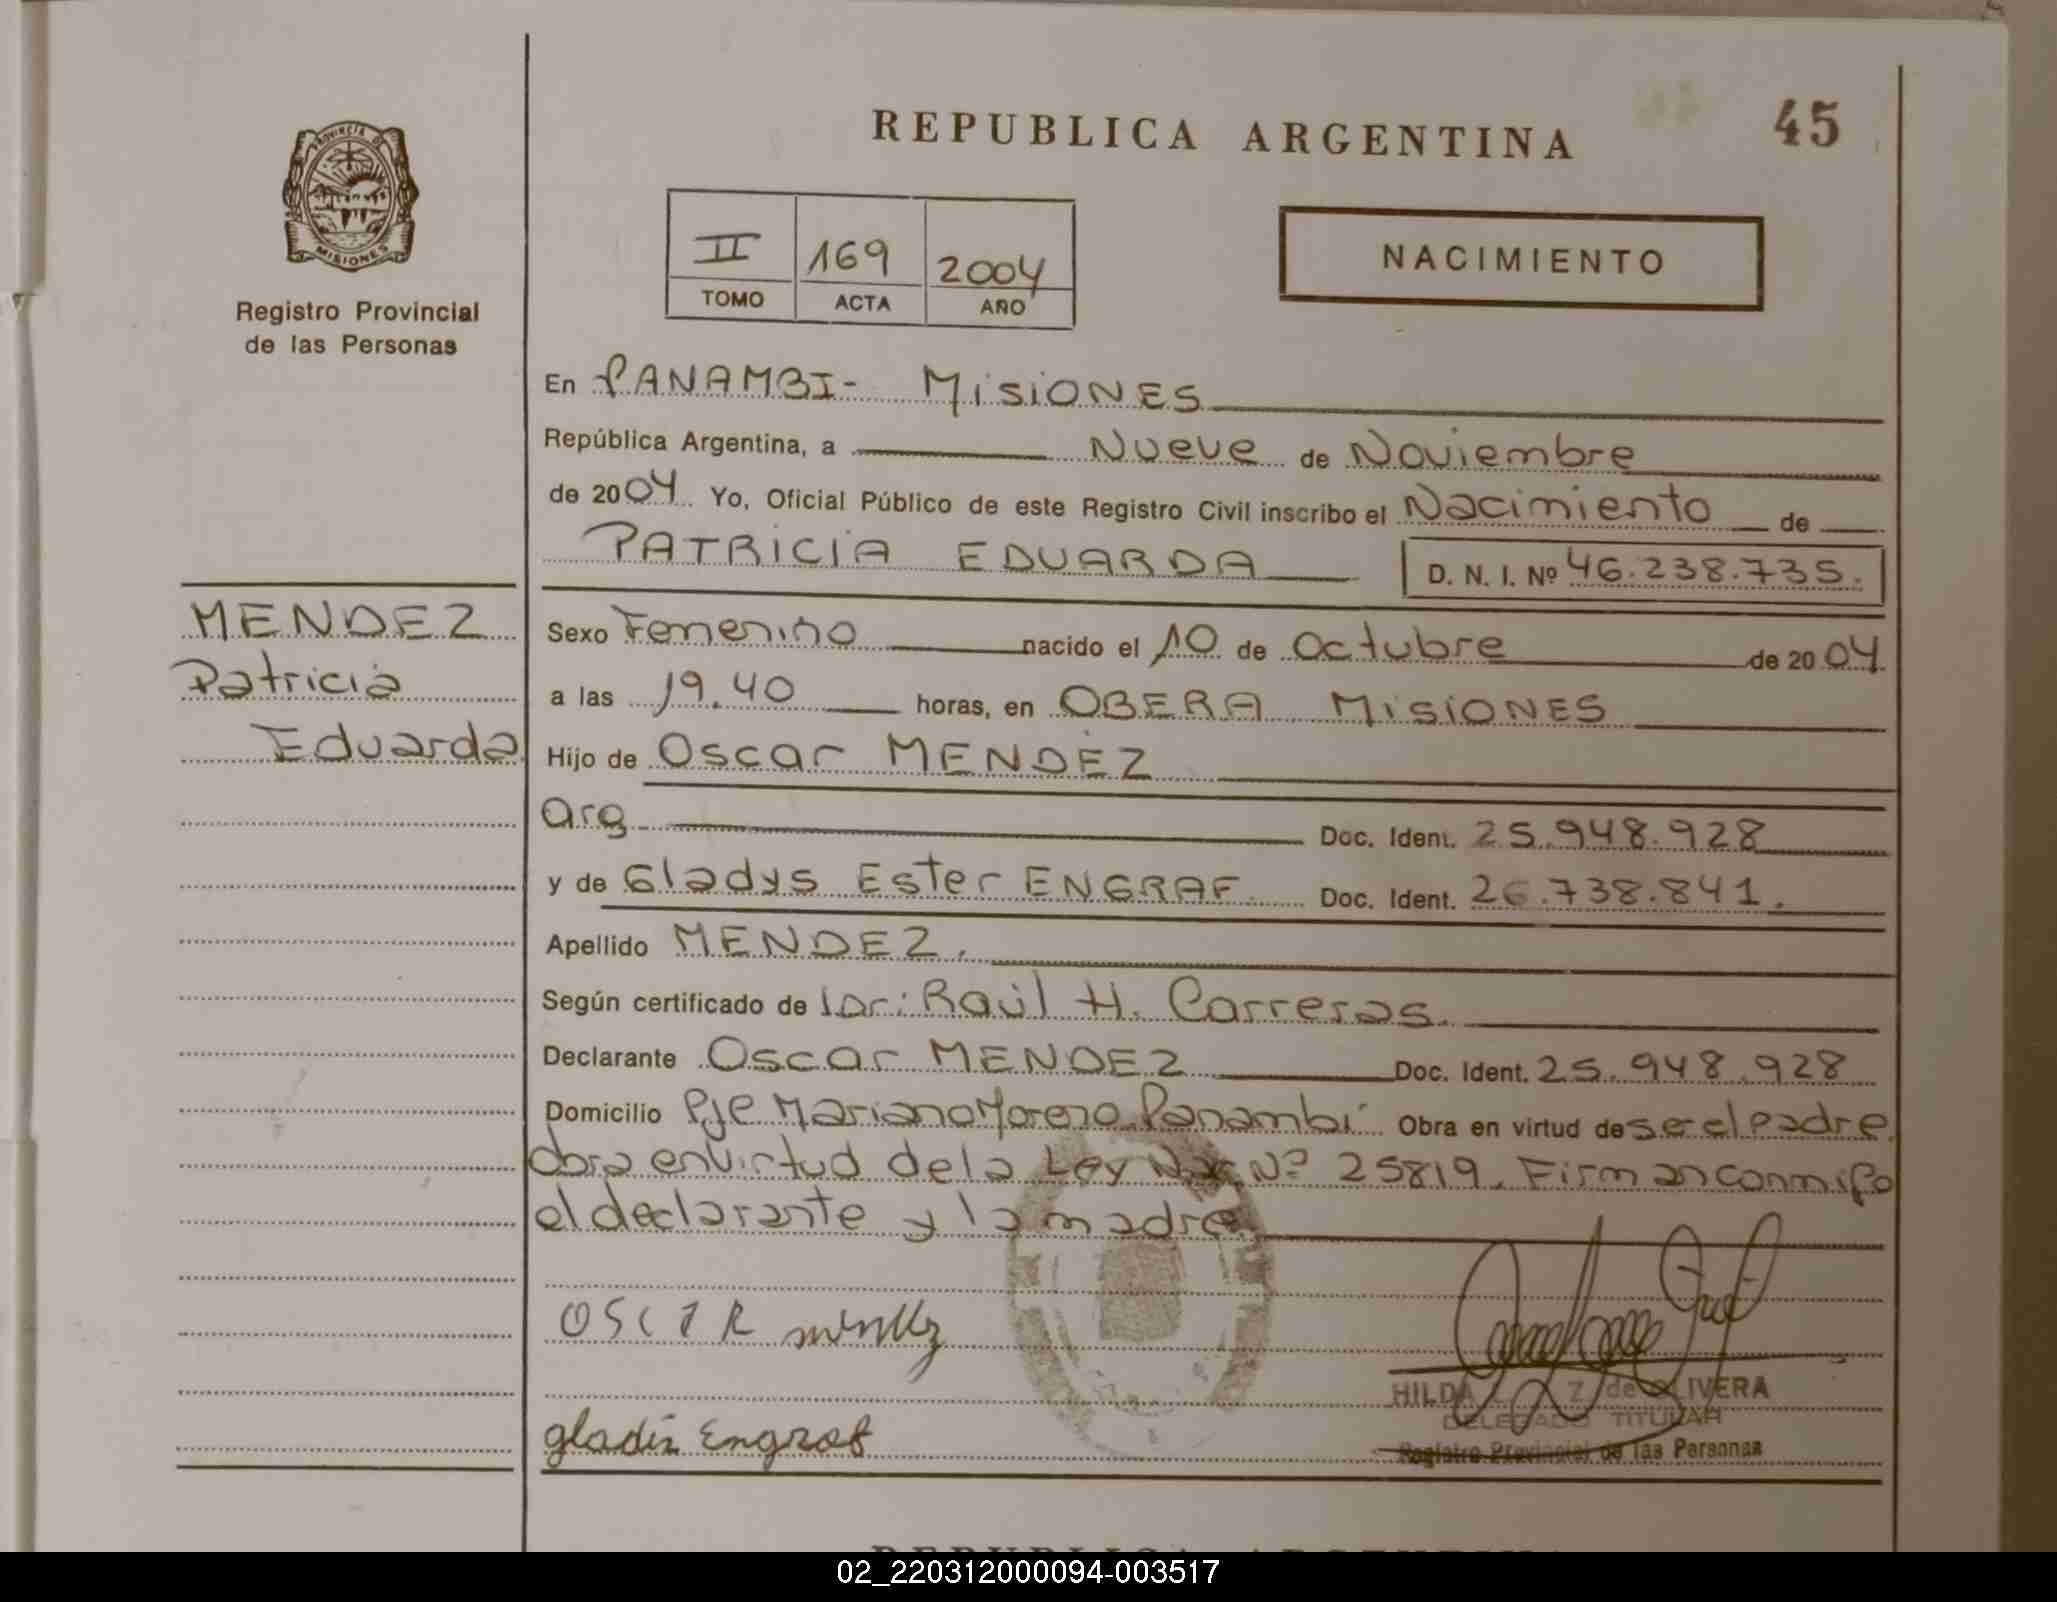 REPUBLICA ARGENTINA
45
PROVINCIA DE
MISIONES
Registro Provincial
de las Personas
II 169 2004
TOMO ACTA AÑO
NACIMIENTO
En PANAMBI- MISIONES
República Argentina, a Nueve de Noviembre
de 2004 Yo, Oficial Público de este Registro Civil inscribo el Nacimiento de
PATRICIA EDUARDA D. N. I. Nº 46.238.735.
MENDEZ
Patricia
Eduarda
Sexo Femenino nacido el 10 de Octubre de 2004
a las 19.40 horas, en OBERA MISIONES
Hijo de Oscar MENDEZ
Arg Doc. Ident. 25.948.928
y de Gladys Ester ENGRAF Doc. Ident. 26.738.841.
Apellido MENDEZ.
Según certificado de Raúl H. Carreras.
Declarante Oscar MENDEZ Doc. Ident. 25.948.928
Domicilio Pje Mariano Moreno Panambí Obra en virtud de ser el padre
obra en virtud de la Ley Nac. Nº 25819. Firman conmigo
el declarante y la madre
OSCAR mendez
HILDA Z de OLIVERA
DELEGADO TITULAR
gladis Engraf
Registro Provincial de las Personas
REPUBLICA ARGENTINA
02_220312000094-003517